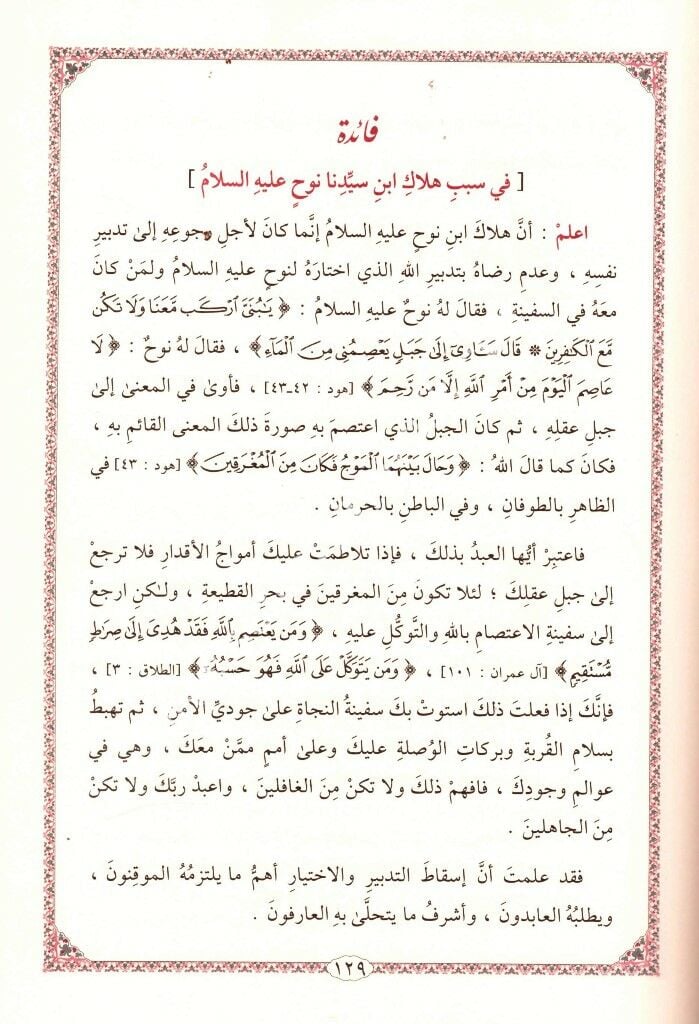 فائدة
[ في سببِ هلاكِ ابنِ سيِّدِنا نوحٍ عليهِ السلامُ ]
اعلمْ : أنَّ هلاكَ ابنِ نوحٍ عليهِ السلامُ إنَّما كانَ لأجلِ رجوعِهِ إلىٰ تدبيرِ
نفسِهِ ، وعدمِ رضاهُ بتدبيرِ اللهِ الذي اختارَهُ لنوحٍ عليهِ السلامُ ولمَنْ كانَ
معَهُ في السفينةِ ، فقالَ لهُ نوحٌ عليهِ السلامُ : ﴿ يَٰبُنَىَّ ٱرْكَب مَّعَنَا وَلَا تَكُن
مَّعَ ٱلْكَٰفِرِينَ * قَالَ سَـَٔاوِىٓ إِلَىٰ جَبَلٍ يَعْصِمُنِى مِنَ ٱلْمَآءِ ﴾ ، فقالَ لهُ نوحٌ : ﴿ لَا
عَاصِمَ ٱلْيَوْمَ مِنْ أَمْرِ ٱللَّهِ إِلَّا مَن رَّحِمَ ﴾ [هود : ٤٢-٤٣] ، فأوىٰ في المعنىٰ إلىٰ
جبلِ عقلِهِ ، ثم كانَ الجبلُ الذي اعتصمَ بهِ صورةَ ذلكَ المعنى القائمِ بهِ ،
فكانَ كما قالَ اللهُ : ﴿ وَحَالَ بَيْنَهُمَا ٱلْمَوْجُ فَكَانَ مِنَ ٱلْمُغْرَقِينَ ﴾ [هود : ٤٣] في
الظاهرِ بالطوفانِ ، وفي الباطنِ بالحرمانِ .
فاعتبِرْ أيُّها العبدُ بذلكَ ، فإذا تلاطمَتْ عليكَ أمواجُ الأقدارِ فلا ترجعْ
إلىٰ جبلِ عقلِكَ ؛ لئلا تكونَ مِنَ المغرقينَ في بحرِ القطيعةِ ، ولـٰكنِ ارجعْ
إلىٰ سفينةِ الاعتصامِ باللهِ والتَّوكُّلِ عليهِ ، ﴿ وَمَن يَعْتَصِم بِٱللَّهِ فَقَدْ هُدِىَ إِلَىٰ صِرَٰطٍ
مُّسْتَقِيمٍ ﴾ [آل عمران : ١٠١] ، ﴿ وَمَن يَتَوَكَّلْ عَلَى ٱللَّهِ فَهُوَ حَسْبُهُۥٓ ﴾ [الطلاق : ٣] ،
فإنَّكَ إذا فعلتَ ذلكَ استوتْ بكَ سفينةُ النجاةِ علىٰ جوديِّ الأمنِ ، ثم تهبطُ
بسلامِ القُربةِ وبركاتِ الوُصلةِ عليكَ وعلىٰ أممٍ ممَّنْ معَكَ ، وهي في
عوالمِ وجودِكَ ، فافهمْ ذلكَ ولا تكنْ مِنَ الغافلينَ ، واعبدْ ربَّكَ ولا تكنْ
مِنَ الجاهلينَ .
فقد علمتَ أنَّ إسقاطَ التدبيرِ والاختيارِ أهمُّ ما يلتزمُهُ الموقِنونَ ،
ويطلبُهُ العابدونَ ، وأشرفُ ما يتحلَّىٰ بهِ العارفونَ .
١٢٩